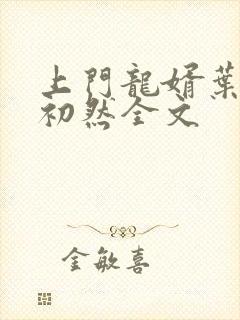 上門龍婿葉
初然全文
金敏喜